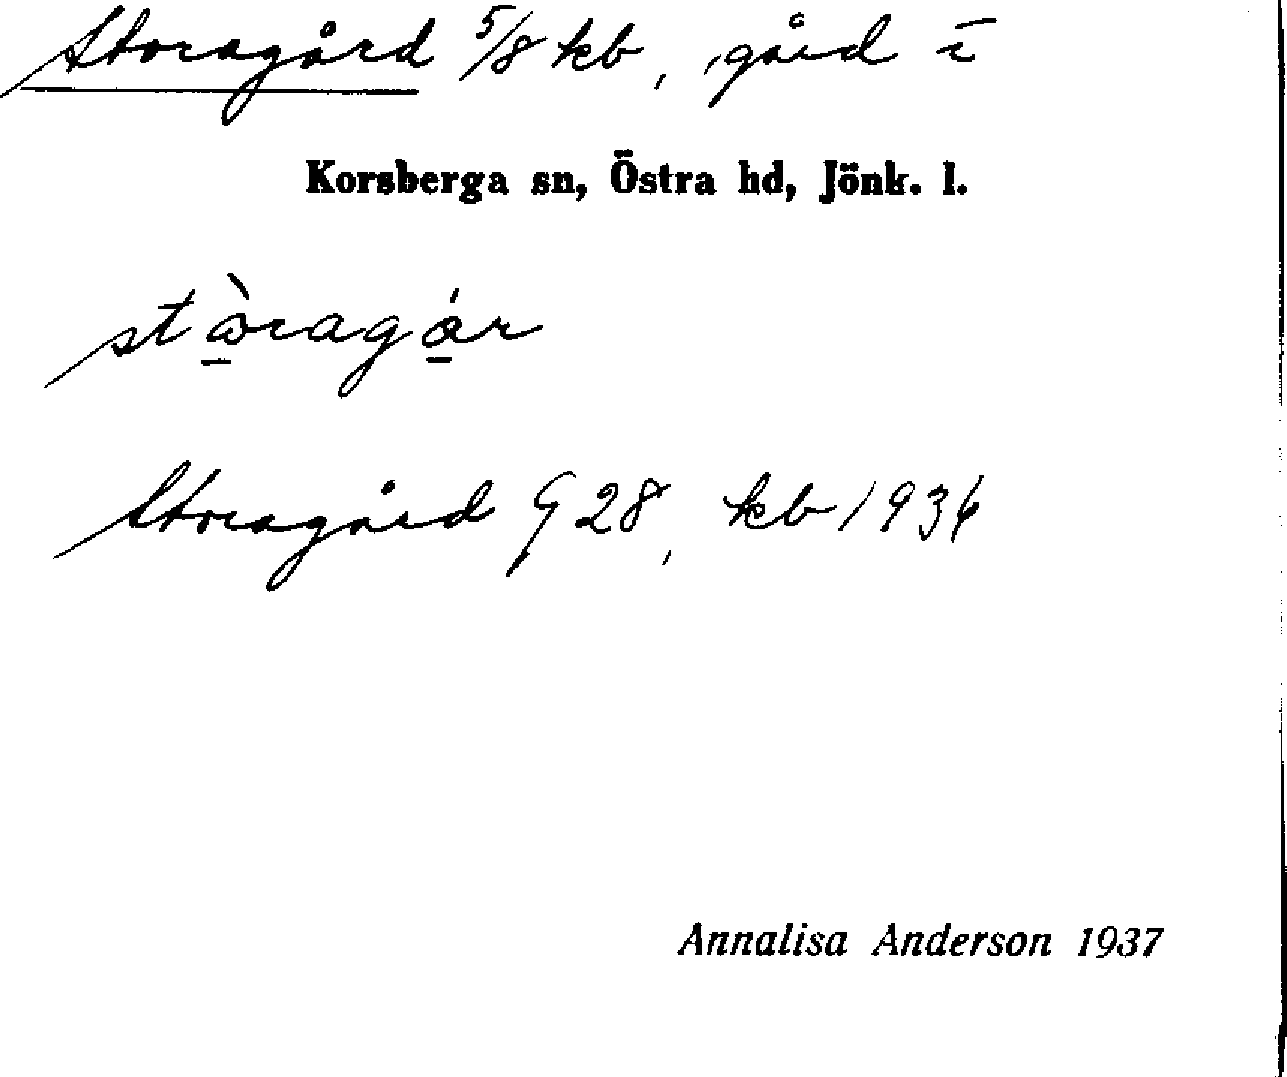 Storagård 5/8 kb, gård i
Korsberga sn, Östra hd, Jönk. l.
Storagård G 28, kb 1936
Annalisa Anderson 1937